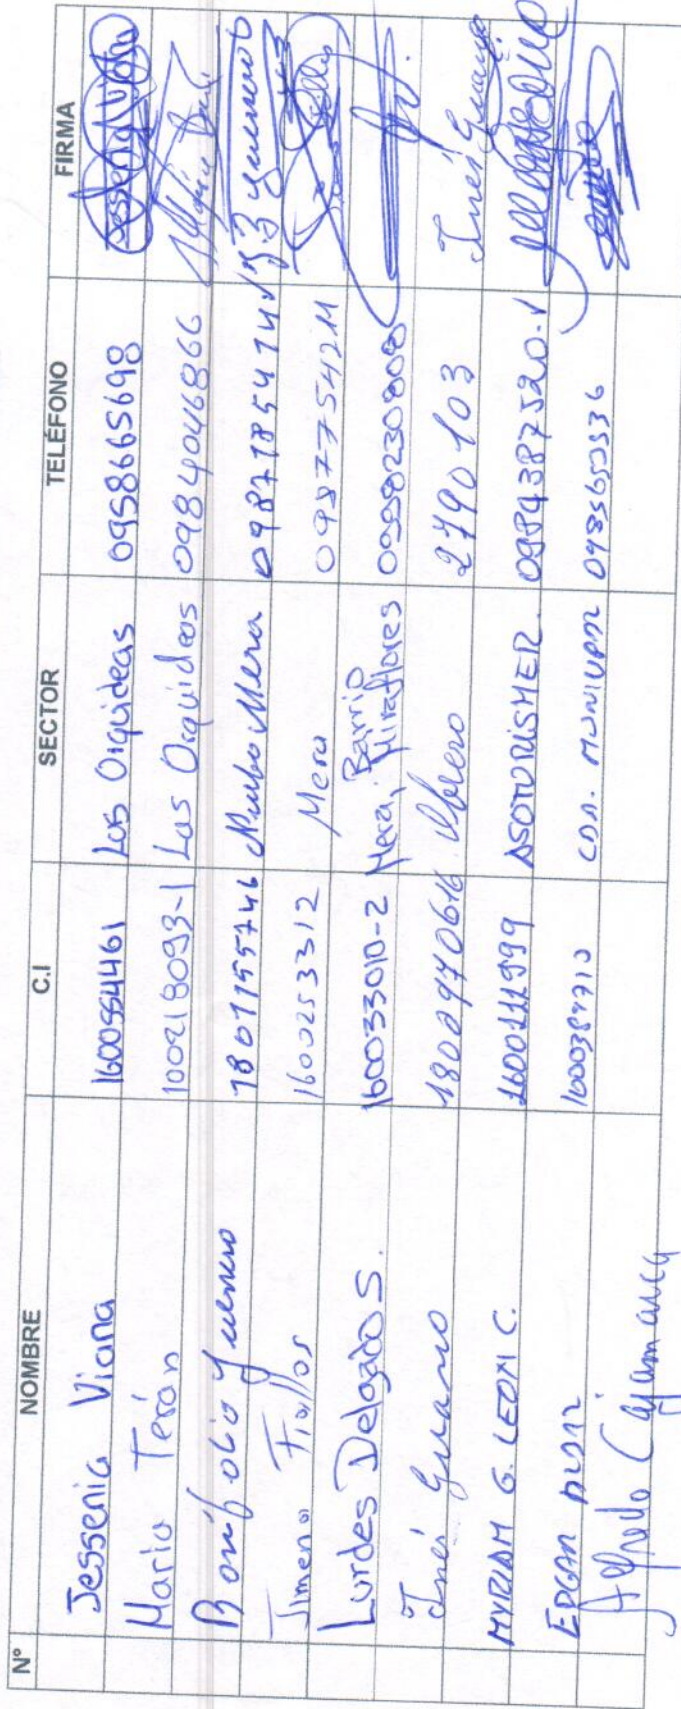 N° NOMBRE C.I SECTOR TELÉFONO FIRMA
Jessenia Viana 1600554461 Las Orquideas 0958665698
Maria Terán 100218093-1 Las Orquideas 0984046866
Bonifolio Guerrero 1801155746 Nuebo Mera guerrero
Jimena Fiallos 1600253312 Mera 0987754211
Lurdes Delgado S. 160033010-2 Mera, Barrio Miraflores 0998230808
Inés Guano 1800970616 Obrero 2790103 Inés Guano
MYRIAM G. LEON C. 1600111999 ASOTURISMER
EDGAR 1600387710 CDA. MUNICIPAL 0985650336
Alfredo Cajamarca